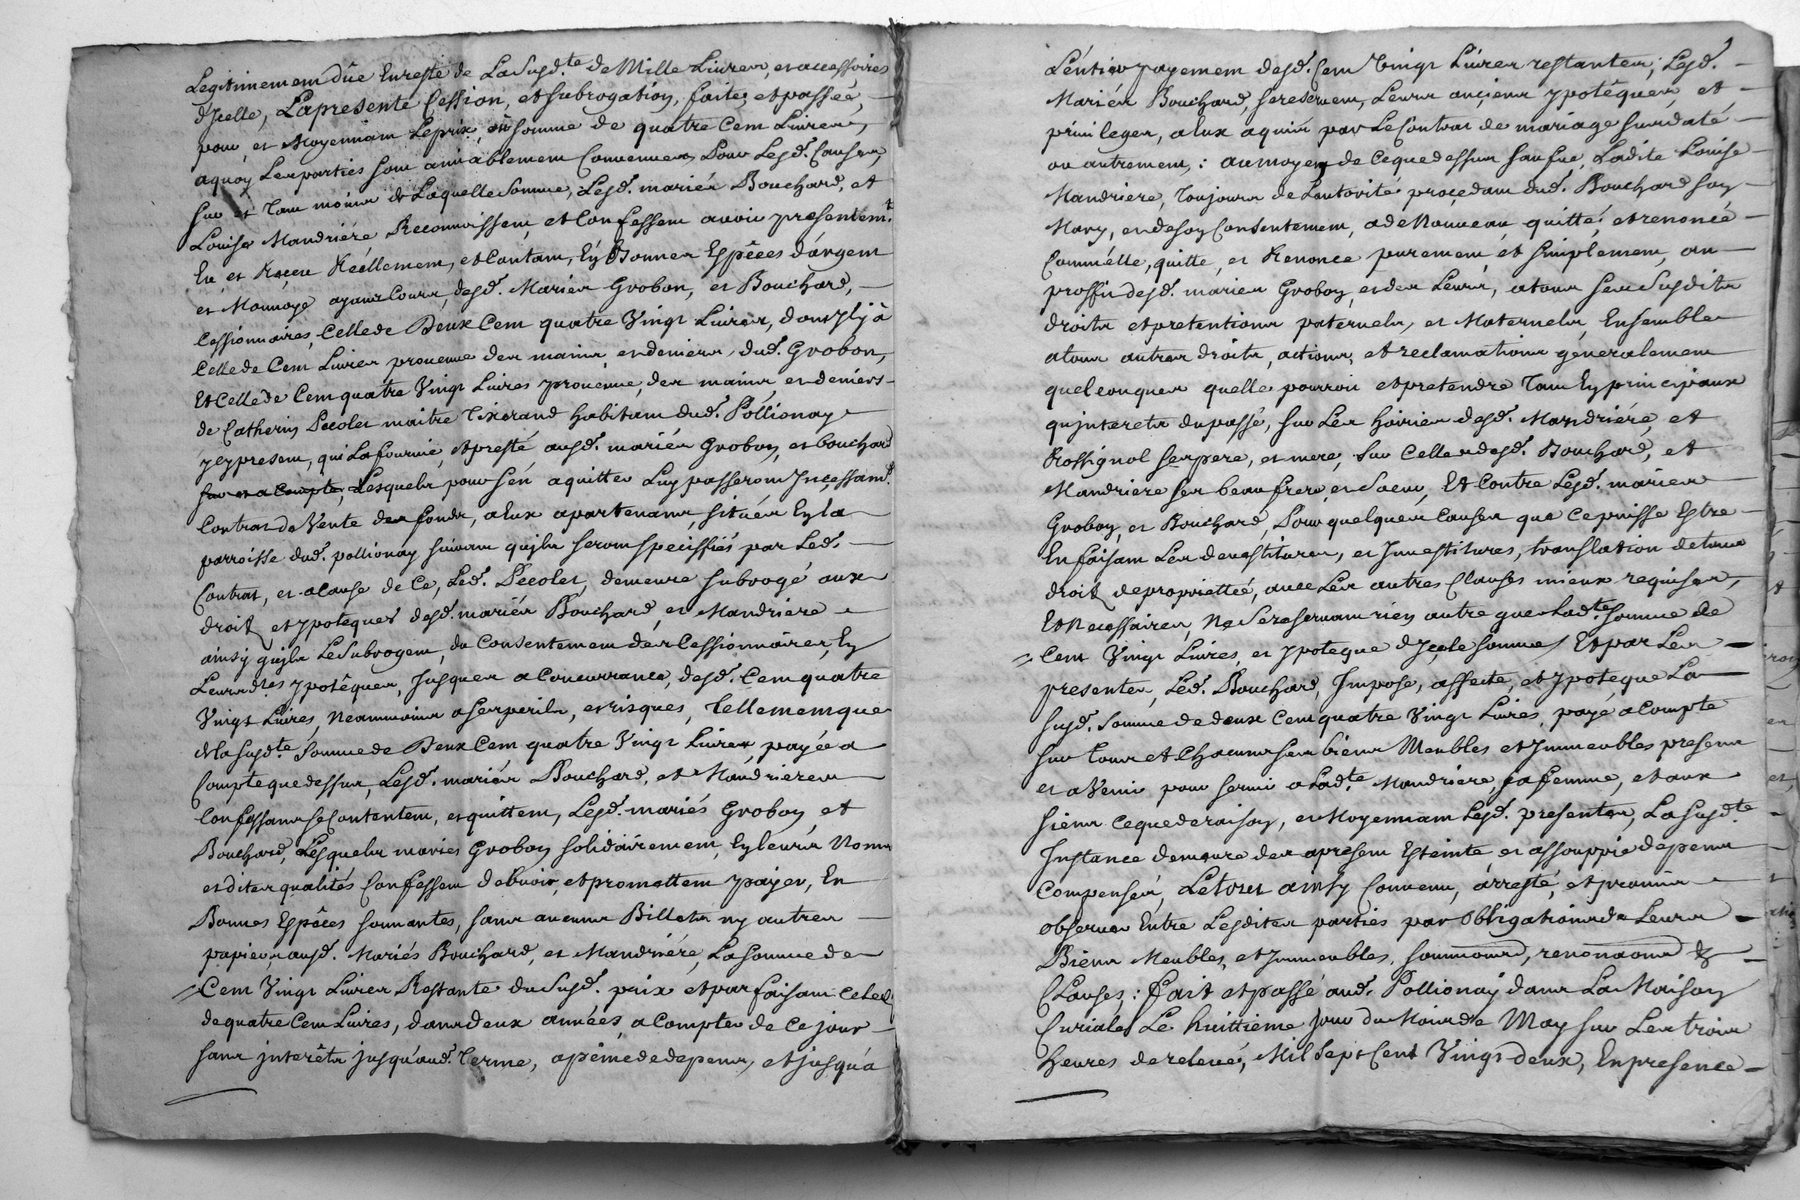 Legitimement düe En reste de La Susd.te de Mille Livres, et accessoires
d'Jcelle, La presente Cession, et subrogation, faite, et passée,
pour, et Moyennant Le prix, et somme de quatre Cent Livres,
a quoy Les parties sont amiablement Convenues Pour Lesd. Causes,
Sur et Tant moins de Laquelle Somme, Lesd. mariés Bouchard, et
Louise Mandriére Reconnoissent, et Confessent avoir presentem.t
Eu et Reçeu Réellement, et Contant, En Bonnes Espêces d'argent
et Monnoye ayant Cours, desd. Mariés Grobon, et Bouchard,
Cessionnaires, Celle de Deux Cent quatre Vingt Livres, dont Jl y à
Celle de Cent Livres provenue des mains, et deniers, dud. Grobon,
Et Celle de Cent quatre Vingt Livres provenüe, des mains, et deniers
de Catherin Decolet maitre Tixerand habitant dud. Pollionay
Jcy present, qui La fournie, et presté ausd. mariés Grobon, et bouchard
Lesquels pour s'en aquitter Luy passeront Jncessam.t
Contrat de Vente des fonds, a Eux apartenants, situés En La
parroisse dud. pollionay suivant qu'jls seront speciffiés par Led.
Contrat, et a Cause de Ce, Led. Decolet, demeure subrogé aux
droits et ypotêques desd. mariés Bouchard, et Mandriere
ainsy qu'jls Le Subrogent, du Consentement des Cessionnaires, En
Leurs d.tes ypotêques, Jusques a Concurrance, desd. Cent quatre
Vingt Livres, Neanmoins a ses perils, et risques, Tellement que
de la susd.te somme de Deux Cent quatre Vingt Livres payée a
Compte que dessus, Lesd. mariés Bouchard, et Mandriére
Confessants se Contentent, et quittent, Lesd. mariés Grobon, et
Bouchard, Lesquels mariés Grobon solidairement, En leurs Noms
et dites qualités Confessent debvoir, et promettent payer, En
Bonnes Espêces sonnantes, sans aucuns Billets ny autres
papiers, ausd. Mariés Bouchard, et Mandriére, La somme de
Cent Vingt Livres Restante du Susd. prix et parfaisant Celuy
de quatre Cent Livres, dans deux années, a Compter de Ce jour
sans jnterêts jusqu'aud. Terme, a peine de depens, et jusqu'a
L'entier payement desd. Cent Vingt Livres restantes; Lesd.
Mariés Bouchard, se reservent, Leurs anciens ypotêques, et
privileges, a Eux aquis par Le Contrat de mariage Susdaté
ou autrement; au moyen de Ce que dessus Ladite Louise
Mandriere, Toujours de L'autorité proçedant dud. Bouchard son
Mary, et de son Consentement, a de Nouveau quitté, et renoncé
Comm'elle, quitte, et Renonce purement, et simplement, au
proffit desd. mariés Grobon, et des Leurs, a tous ses Susdits
droits et pretentions paternels, et Maternels, Ensemble
a tous autres droits, actions, et reclamations generalement
quelconques quelle pourroit et pretendre Tant En principaux
qu'jnterets du passé, sur Les hoiries desd. Mandriére, et
Rossignol ses pere, et mere, sur Celles desd. Bouchard, et
Mandriere ses beaufrere, et soeur, Et Contre Lesd. mariés
Grobon, et Bouchard, Pour quelques Causes que Ce puisse Estre
En faisant Les devestitures, et Jnvestitures, translation de tous
droits de proprietteé, avec Les autres Clauses mieux requises,
Et Necessaires, Ne se reservant rien autre que Lad.te somme de
Cent Vingt Livres, et ypoteque d'Jcelle somme Et par Les
presentes, Led. Bouchard, Jmpose, affecte, et ypotêque La
susd. somme de deux Cent quatre Vingt Livres, payé a Compte
sur tous et Chacuns ses biens Meubles et Jmmeubles presens
et a Venir pour servir a Lad.te Mandriere, sa femme, et aux
siens Ce que de raison, et Moyennant Lesd. presentes, La susd.te
Jnstance demeure des apresent Esteinte et assouppie depens
Compensés, Le tout ainsy Convenu, arresté, et promis
observer Entre Lesdites parties par obligations de Leurs
Biens Meubles, et Jmmeubles, soumissions, renonçaons &
Clauses; Fait et passé aud. Pollionay dans La Maison
Curiale, Le huittieme jour du Mois de May sur Les trois
heures de relevée, Mil Sept Cent Vingt deux, En presence